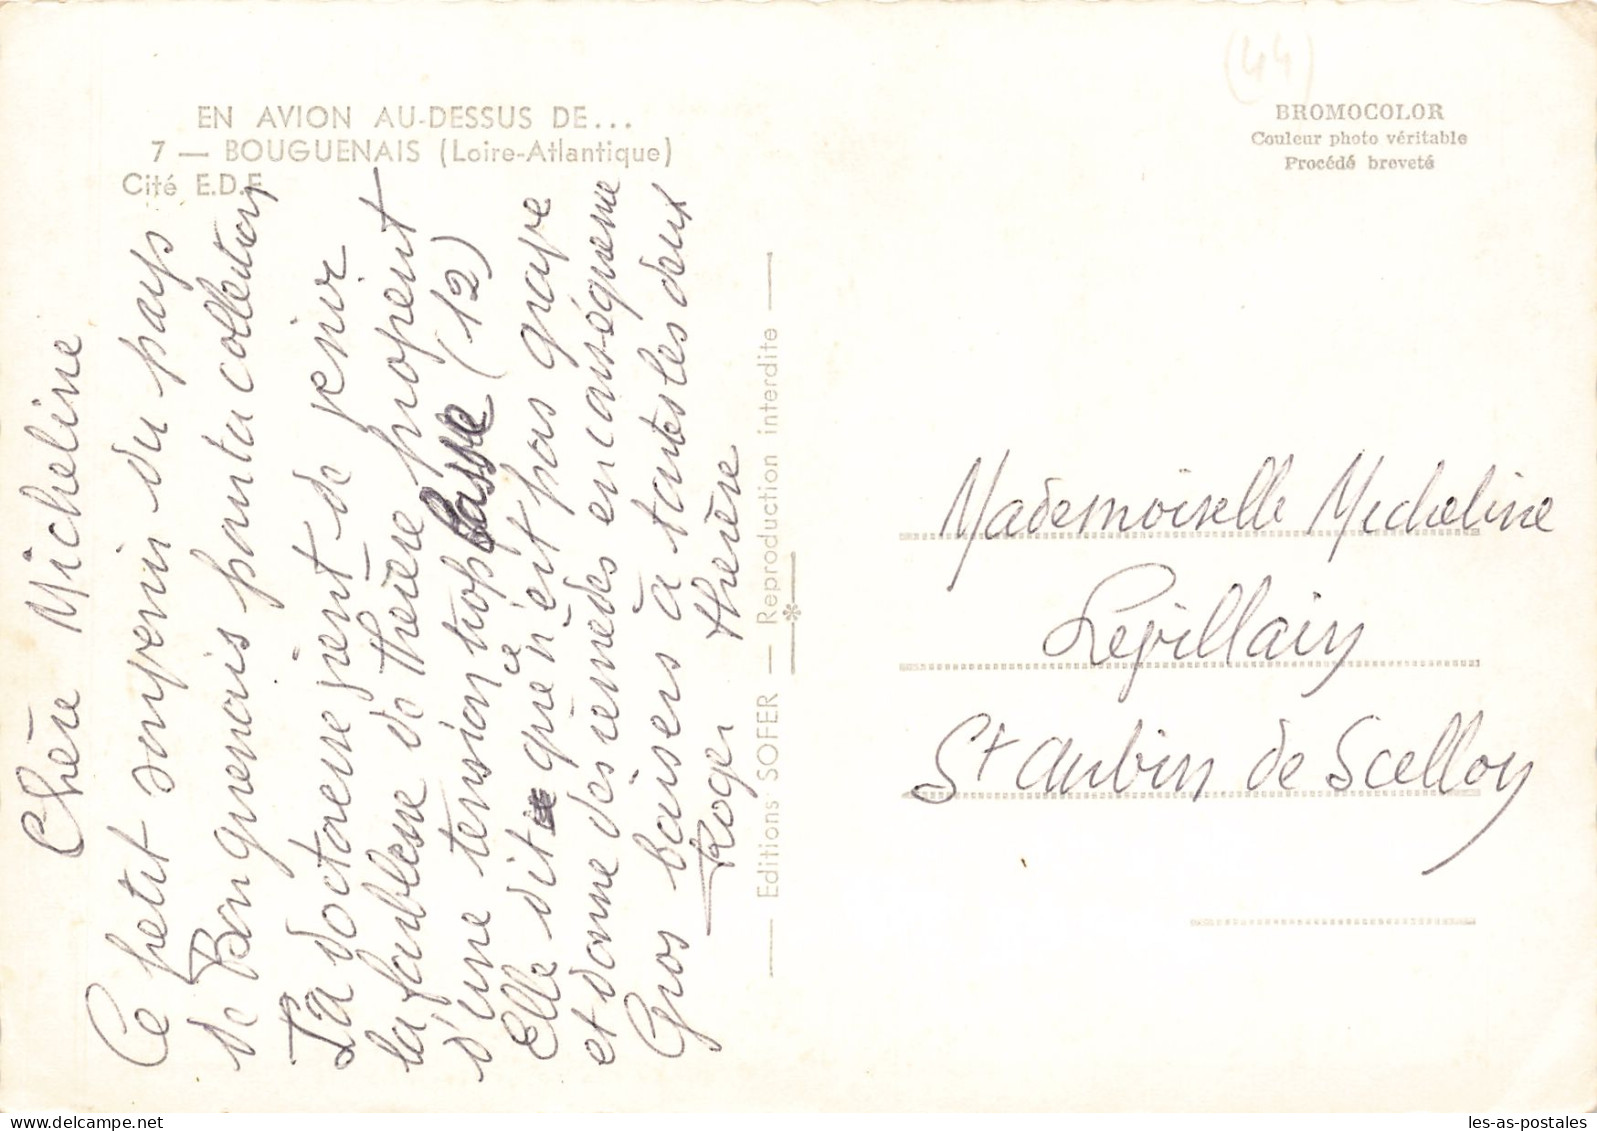 (44)
EN AVION AU-DESSUS DE...
7 — BOUGUENAIS (Loire-Atlantique)
Cité E.D.F.
BROMOCOLOR
Couleur photo véritable
Procédé breveté
Chère Micheline
Ce petit souvenir du pays
de Bouguenais pour ta collection
La doctoresse vient de venir
la faiblesse de Thérèse provient
d'une tension trop basse (12)
Elle dit que ce n'est pas grave
et donne des remèdes en conséquence
Gros baisers à toutes les deux
Roger Thérèse
Editions SOFER — Reproduction interdite
Mademoiselle Micheline
Lepillain
St Aubin de Scellon
les-as-postales